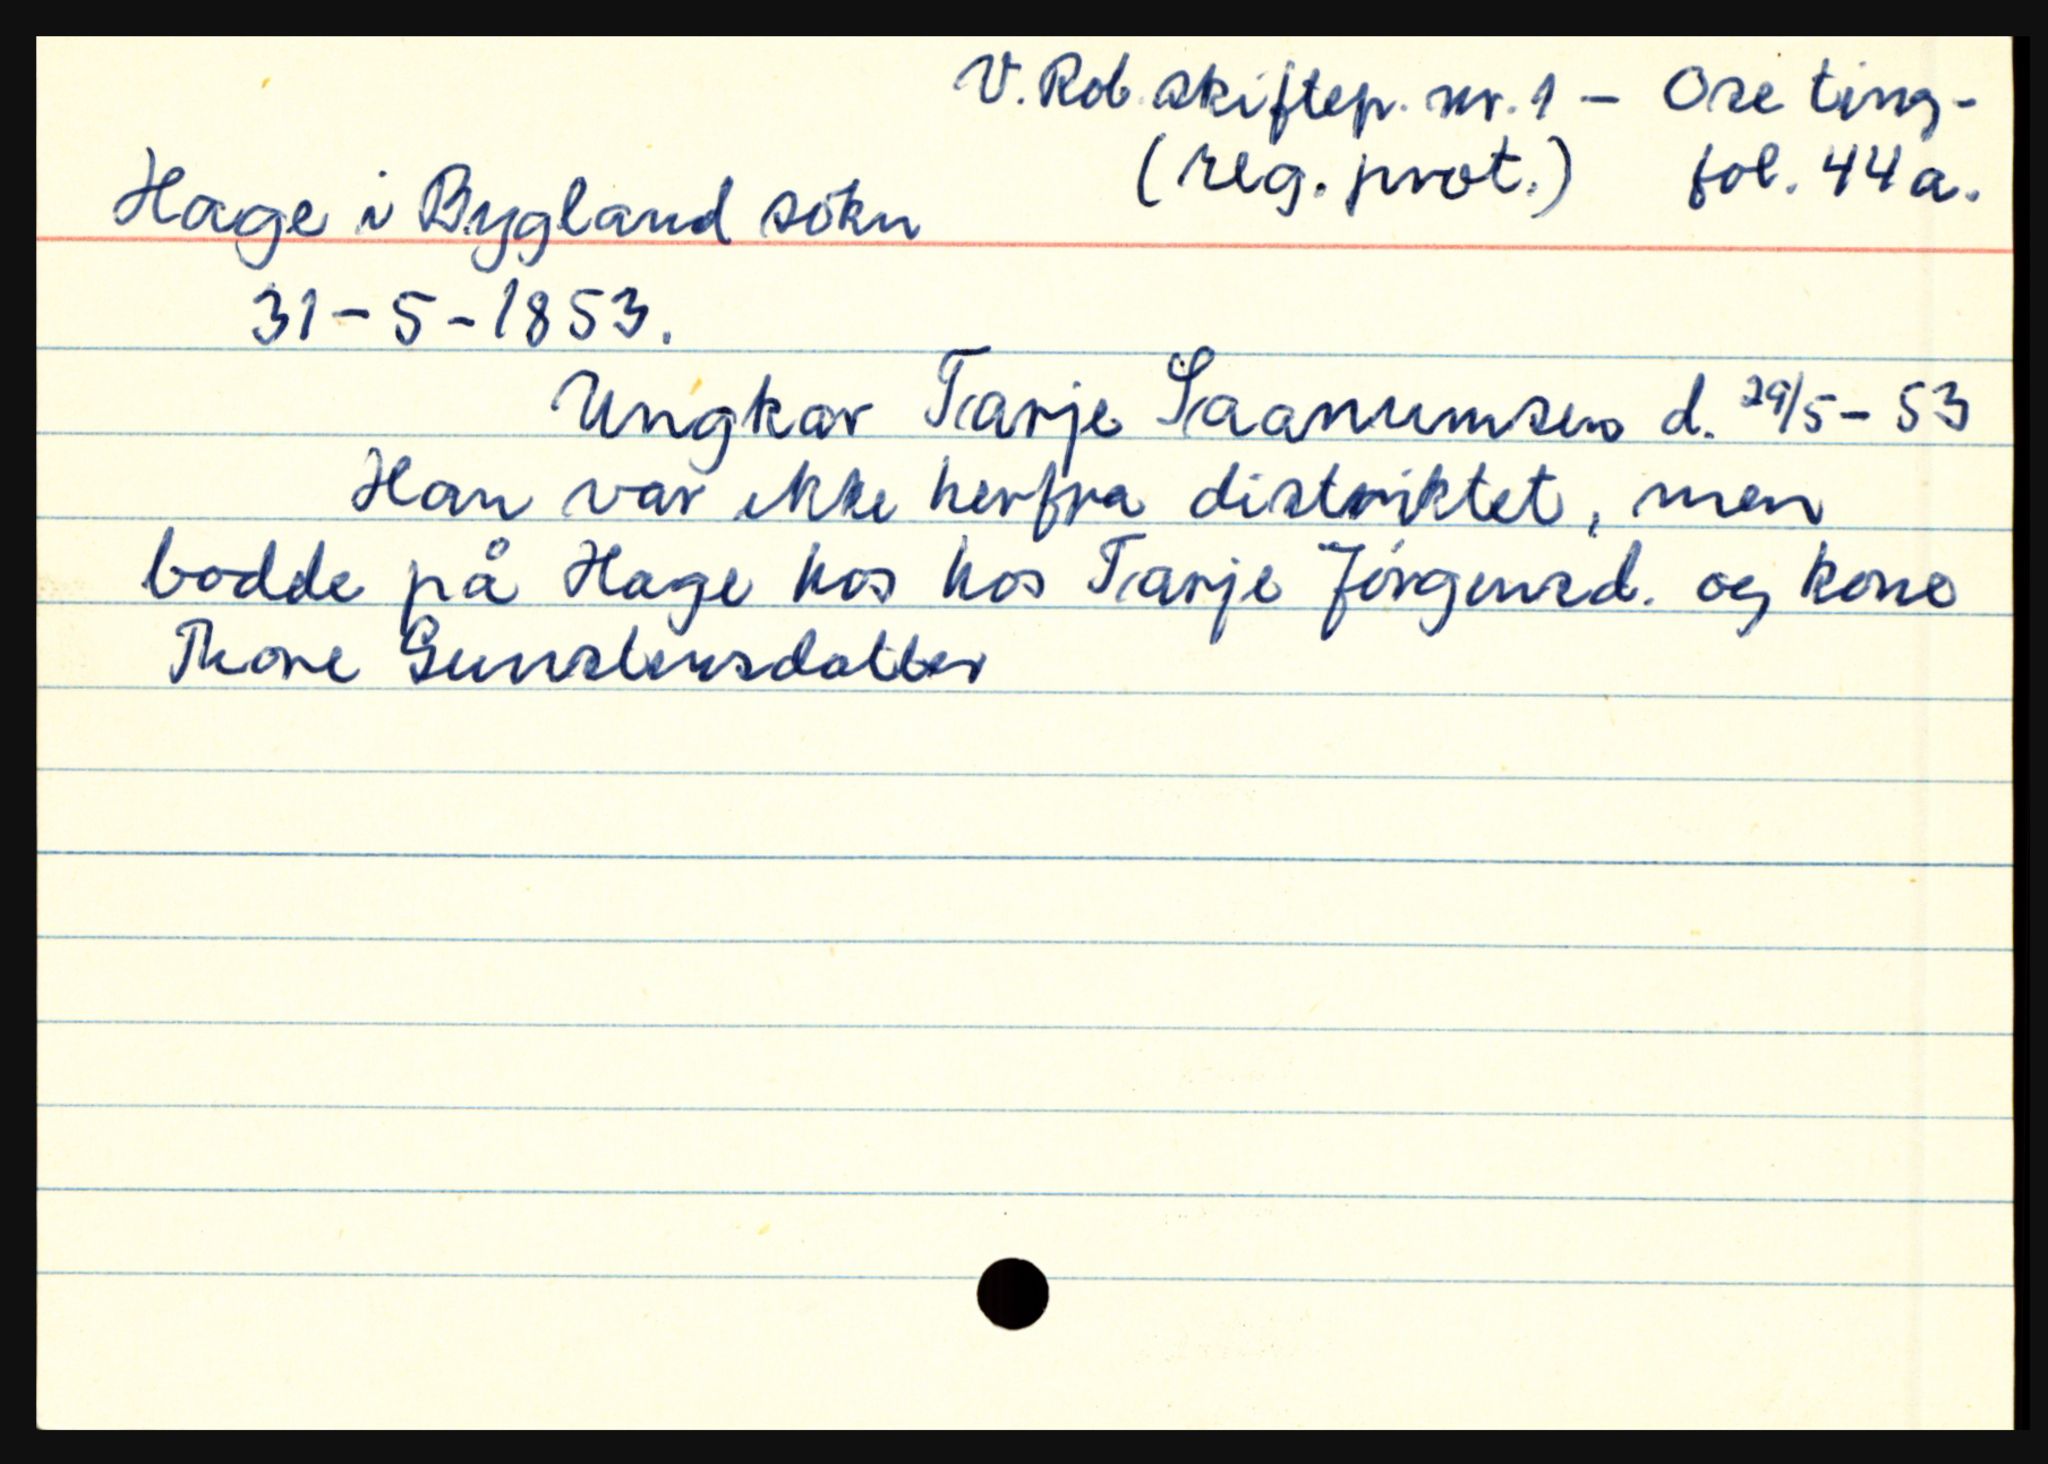 V. Rob. skiftep. nr. 1 – Ose ting-
(reg. prot.) fol. 44a.
Hage i Bygland sokn
31-5-1853.
Ungkar Tarje Saanumsen d. 29/5-53
Han var ikke herfra distriktet, men
bodde på Hage hos hos Tarje Jörgensd. og kone
Thore Gunsteinsdatter